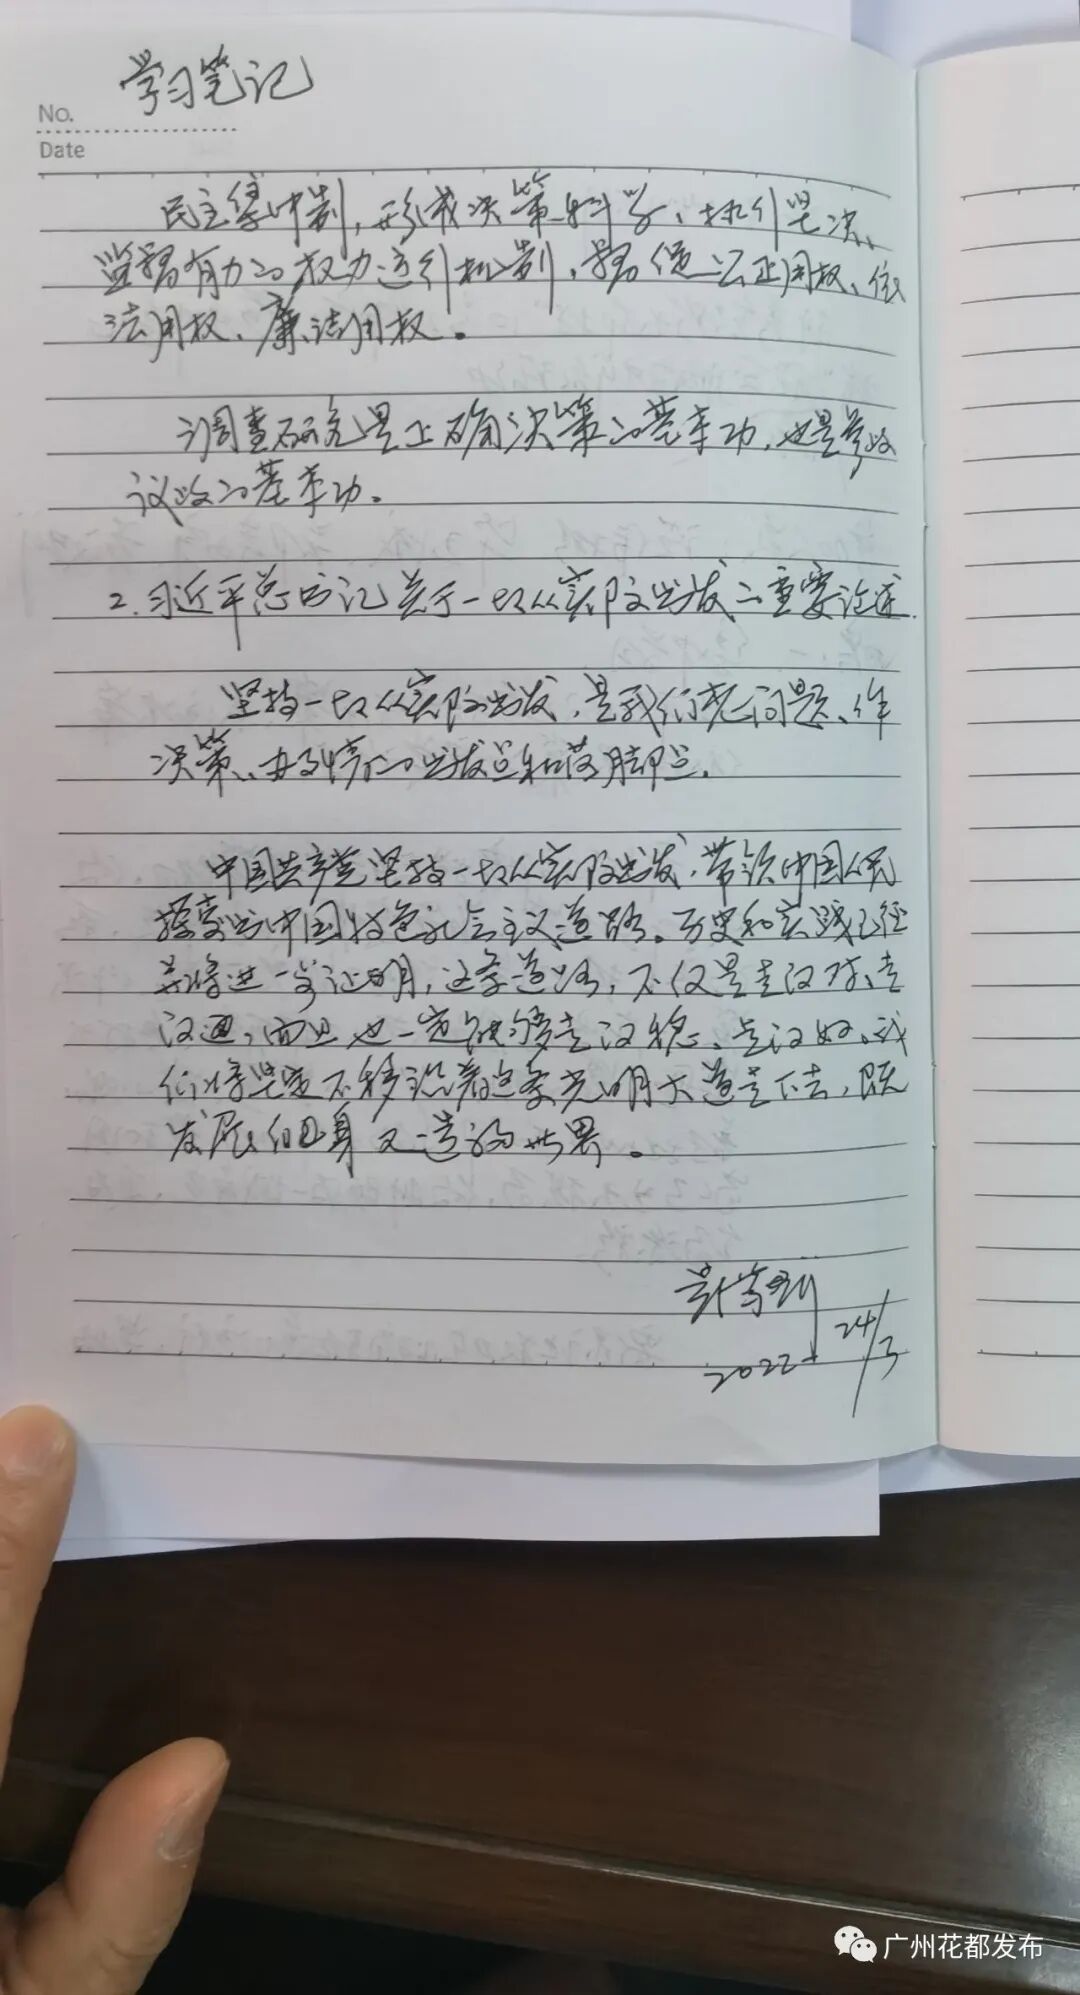 学习笔记
No.
Date
民主集中制，形成决策科学、执行坚决、
监督有力的权力运行机制，督促公正用权、依
法用权、廉洁用权。
调查研究是正确决策的基本功，也是参政
议政的基本功。
2.习近平总书记关于一切从实际出发的重要论述.
坚持一切从实际出发，是我们想问题、作
决策、办事情的出发点和落脚点.
中国共产党坚持一切从实际出发，带领中国人民
探索出中国特色社会主义道路。历史和实践已经
并将进一步证明，这条道路，不仅走得对、走
得通，而且也一定能够走得稳、走得好。我
们将坚定不移沿着这条光明大道走下去，既
发展自身又造福世界。
2022 24/3
广州花都发布